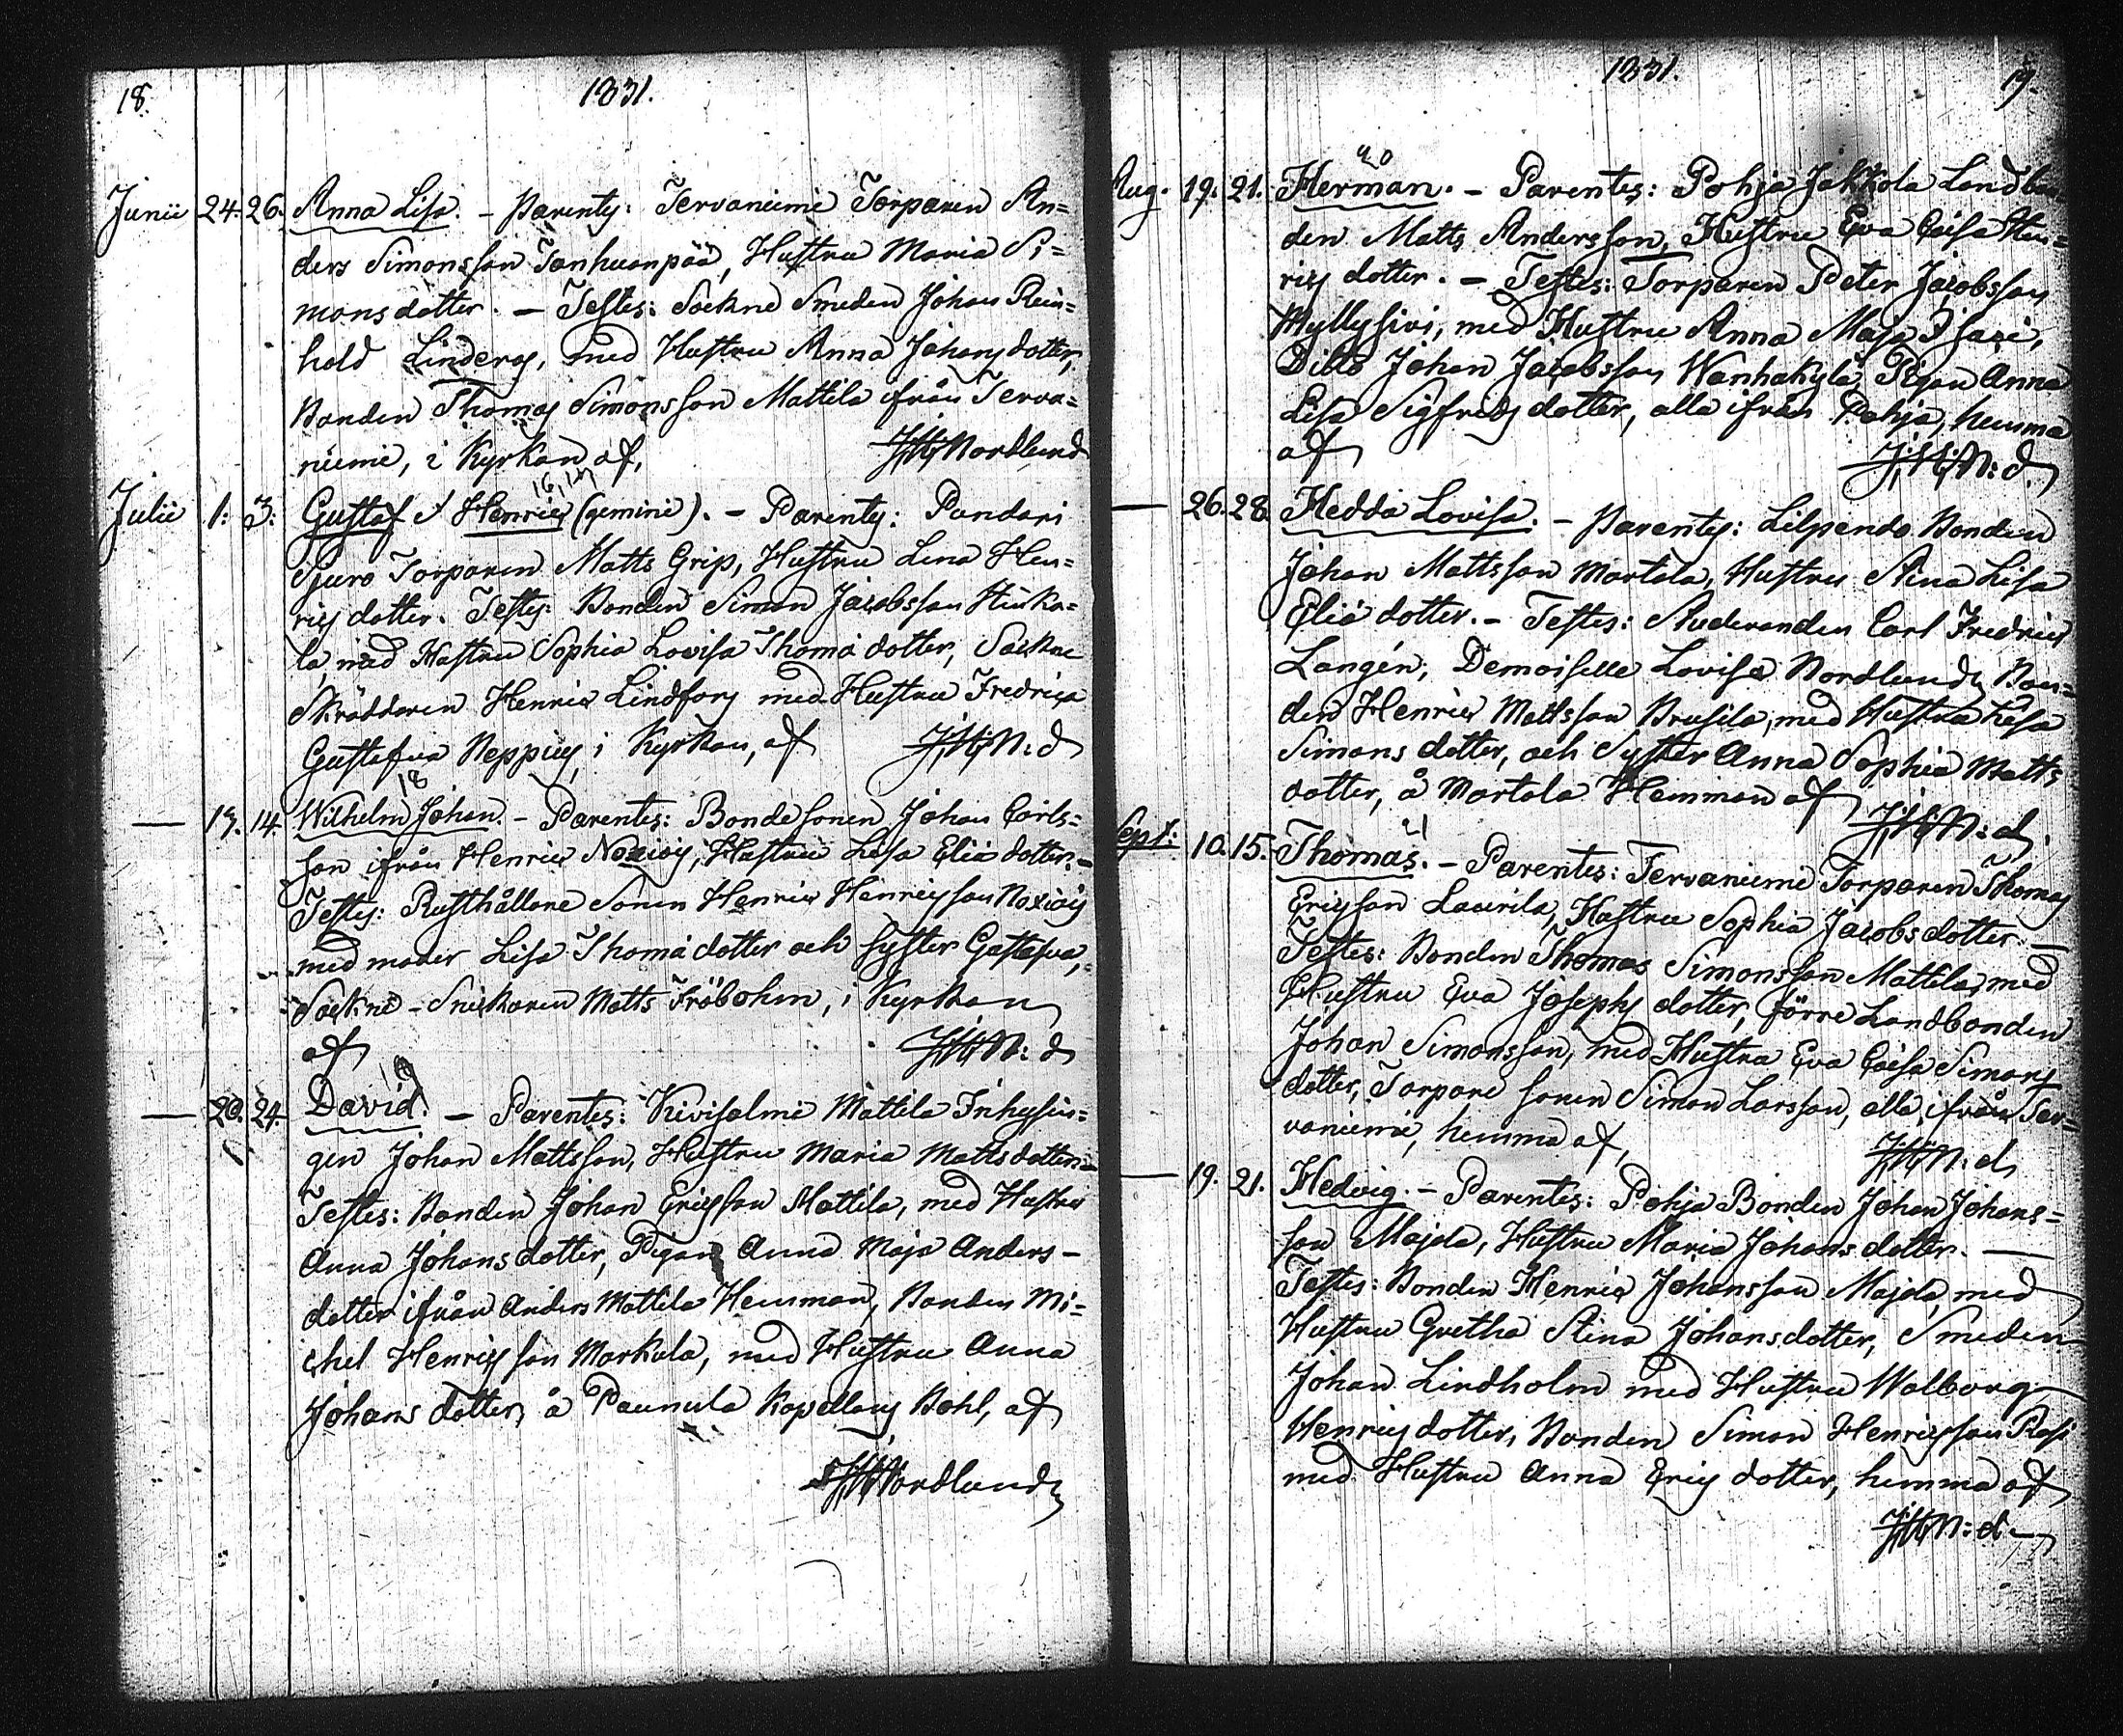 18.
1831.
Junii 24. 26. Anna Lisa. - Parentes: Tervaniemi Torparen An=
ders Simonsson Tanhuanpää, Hustru Maria Si=
mons dotter. - Testes: Sockne Smeden Johan Rein=
hold Linderos, med Hustru Anna Johans dotter,
Bonden Thomas Simonsson Mattila ifrån Terva=
niemi, i Kyrkan af, JHNordlund
16, 17,
Julii 1: 3: Gustaf & Henric (gemini). - Parentes: Pandari
Sjuro Torparen Matts Grip, Hustru Lena Hen=
rics dotter. Testes: Bonden Simon Jacobsson Hinka=
la, med Hustru Sophia Lovisa Thomä dotter, Sockne
Skräddaren Henric Lindfors med Hustru Fredrica
Gustafva Neppius, i Kyrkan, af JHN:d
18
— 13. 14. Wilhelm Johan. - Parentes: Bondesonen Johan Carls=
son ifrån Henric Noxiois, Hustru Lisa Eliä dotter. -
Testes: Rusthållare Sonen Henric Henricsson Noxiois
med moder Lisa Thomä dotter och syster Gustafva,
Sockne - Snickaren Matts Fröbohm, i Kyrkan
af JHN: d
19
— 20. 24. David. - Parentes: Kivisalmi Mattila Inhysin=
gen Johan Mattsson, Hustru Maria Matts dotter. -
Testes: Bonden Johan Ericsson Mattila, med Hustru
Anna Johans dotter, Pigan Anna Maja Anders -
dotter ifrån Anders Mattila Hemman, Bonden Mi=
chel Henricsson Markula, med Hustru Anna
Johans dotter, å Paunula Kapellans Bohl, af
JHNordlund
1831.
19.
20
Aug. 19. 21. Herman. - Parentes: Pohja Jakkola Landbon
den Matts Andersson, Hustru Eva Caisa Hen=
rics dotter. - Testes: Torparen Peter Jacobsson
Myllysivi, med Hustru Anna Maja Isaci,
Ditto Johan Jacobsson Wanhakylä, Pigan Anna
Lisa Sigfrids dotter, alla ifrån Pohja, hemma
af JHN: d.
— 26. 28. Hedda Lovisa. - Parentes: Lilpendo Bonden
Johan Mattsson Martola, Hustru Stina Lisa
Eliä dotter. - Testes: Studeranden Carl Fredric
Langén, Demoiselle Lovisa Nordlund, Bon=
den Henric Mattsson Brusila, med Hustru Lisa
Simons dotter, och Syster Anna Sophia Matts
dotter, å Martola Hemman af JHN: d.
21
Sept: 10. 15. Thomas. - Parentes: Tervaniemi Torparen Thomas
Ericsson Laurila, Hustru Sophia Jacobs dotter. —
Testes: Bonden Thomas Simonsson Mattila, med
Hustru Eva Josephs dotter, förre Landbonden
Johan Simonsson, med Hustru Eva Caisa Simons
dotter, Torpare sonen Simon Larsson, alla ifrån Ter=
vaniemi, hemma af, JHN: d,
— 19. 21. Hedvig. - Parentes: Pohja Bonden Johan Johans=
son Majola, Hustru Maria Johans dotter. —
Testes: Bonden Henric Johansson Majola, med
Hustru Gretha Stina Johansdotter, Smeden
Johan Lindholm med Hustru Walborg
Henrics dotter, Bonden Simon Henricsson Rosi
med Hustru Anna Erics dotter, hemma af
JHN: d.